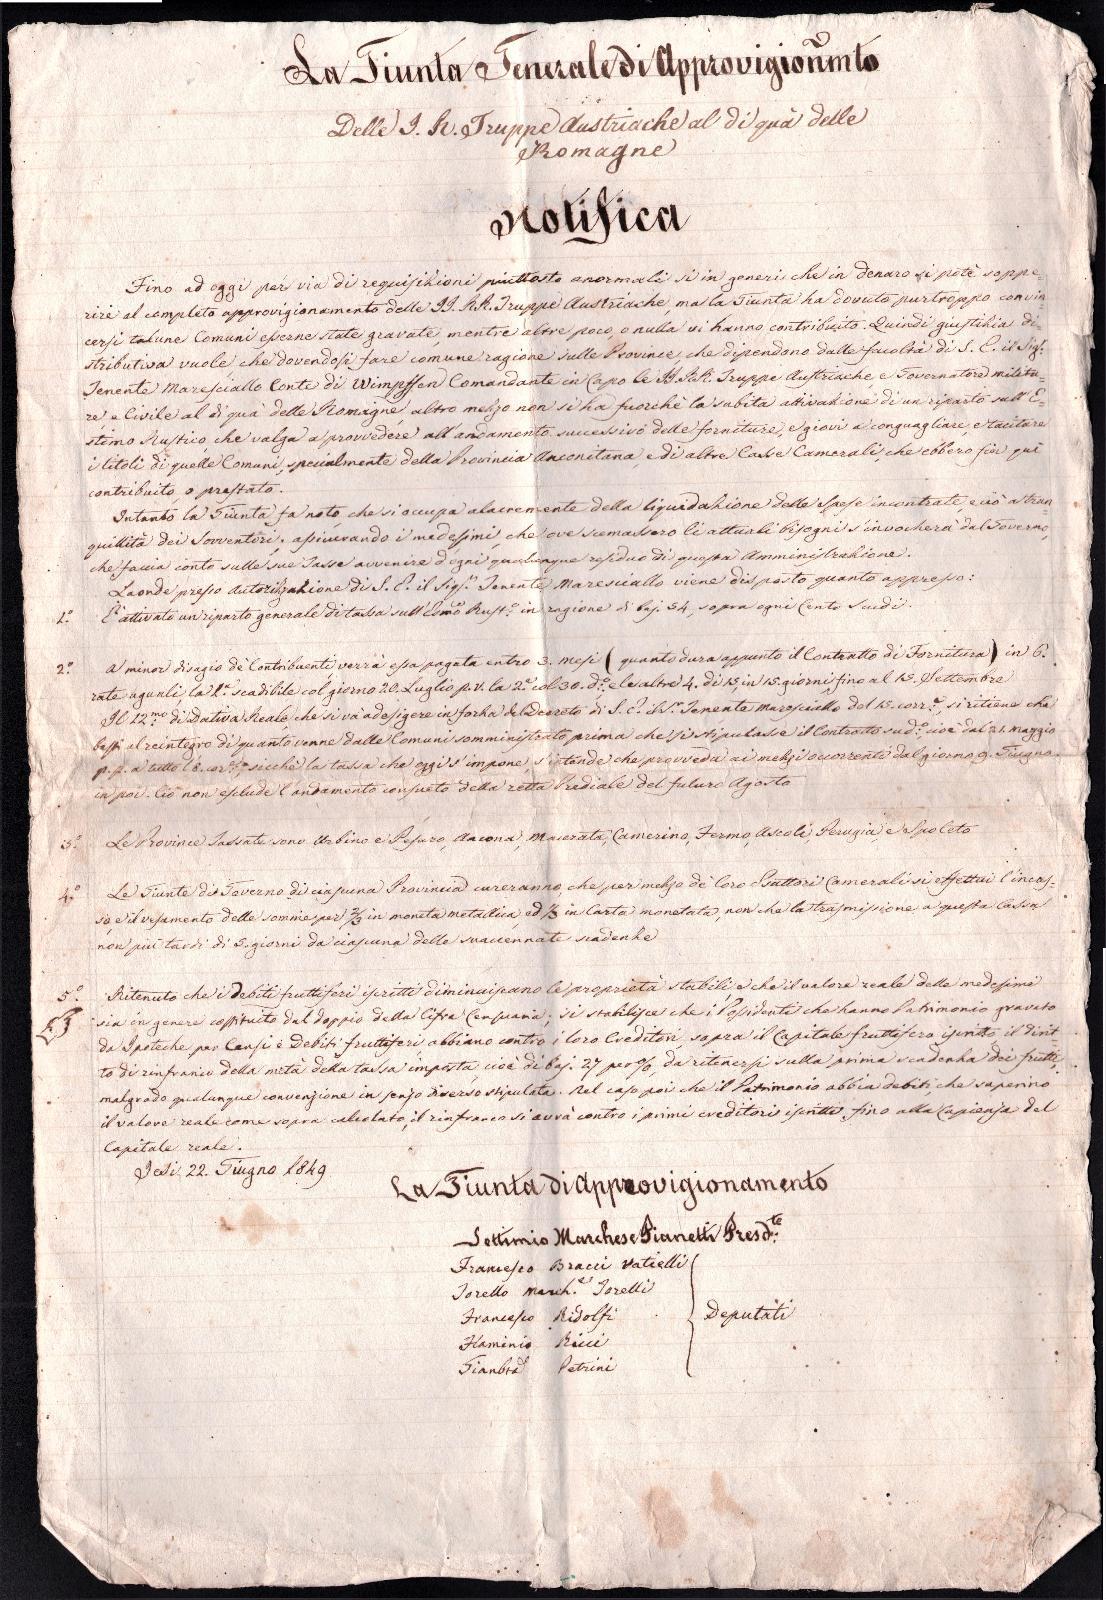 La Giunta Generale di Approvigionmto
Delle I. R. Truppe Austriache al di quà delle
Romagne
Notifica
Fino ad oggi per via di requisizioni piuttosto anormali sì in generi che in denaro si potè soppe-
rire al completo approvigionamento delle II. RR. Truppe Austriache, ma la Giunta ha dovuto purtroppo convin
cersi talune Comuni esserne state gravate, mentre altre poco, o nulla vi hanno contribuito. Quindi giustizia di-
stributiva vuole, che dovendosi fare comune ragione sulle Province, che dipendono dalle facoltà di S. E. il Sigr.
Tenente Maresciallo Conte di Wimpffen Comandante in Capo le II. RR. Truppe Austriache e Governatore milita-
re, e Civile al di quà delle Romagne altro mezzo non si ha fuorchè la subita attivazione di un riparto sull'E-
stimo Rustico che valga a provvedere all'andamento successivo delle forniture, e giovi a conguagliare e tacitare
i titoli di quelle Comuni, specialmente della Provincia Anconitana, e di altre Casse Camerali, che ebbero fin quì
contribuito, o prestato.
Intanto la Giunta fa noto, che si occupa alacremente della liquidazione delle Spese incontrate, e ciò a tran
quillità dei Sovventori, assicurando i medesimi, che ove scemassero li attuali bisogni s'invocherà dal Governo,
che faccia conto sulle sue Tasse avvenire d'ogni qualunque residuo di questa Amministrazione.
Laonde presso Autorizzazione di S. E. il Sigr. Tenente Maresciallo viene disposto quanto appresso:
1.° È attivato un riparto generale di tassa sull'Estimo Rust.° in ragione di baj. 54, sopra ogni Cento Scudi.
2.° A minor disagio de' Contribuenti verrà essa pagata entro 3. mesi (quanto dura appunto il Contratto di Fornitura) in 6.
rate aguali, la 1.a scadibile col giorno 20. Luglio p.v. la 2.a col 30. d.°, e le altre 4. di 15, in 15. giorni fino al 15. Settembre
Il 12.mo di Dativa Reale che si và ad esigere in forza del Decreto di S. E. il Sr. Tenente Maresciallo del 15. corr.e, si ritiene che
basti al reintegro di quanto venne dalle Comuni somministrato prima che si stipulasse il Contratto sud.°, cioè dal 21. maggio
p.p. a tutto l'8. corr.e, sicchè la tassa che oggi s'impone, s'intende che provveda ai mezzi occorrenti dal giorno 9. Giugno
in poi. Ciò non esclude l'andamento consueto della retta Prediale del futuro Agosto
3.° Le Province Tassate sono Urbino e Pesaro, Ancona, Macerata, Camerino, Fermo, Ascoli, Perugia, e Spoleto
4.° Le Giunte di Governo di ciascuna Provincia cureranno, che per mezzo de' loro Esattori Camerali si effettui l'incas-
so, e il versamento delle somme per 2/3 in moneta metallica, ed 1/3 in Carta monetata, non che la trasmissione a questa Cassa
non più tardi di 5. giorni da ciascuna delle suaccennate scadenze
5.° Ritenuto che i Debiti fruttiferi iscritti diminuiscano le proprietà stabili e che il valore reale delle medesime
sia in genere costituito dal doppio della Cifra Censuaria; si stabilisce che i Possidenti che hanno Patrimonio gravato
da Ipoteche per Censi e Debiti fruttiferi abbiano contro i loro Creditori, sopra il Capitale fruttifero iscritto il dirit-
to di rinfranco della metà della tassa imposta cioè di baj. 27 per %, da ritenersi sulla prima scadenza dei frutti,
malgrado qualunque convenzione in senso diverso stipulata. Nel caso poi che il Patrimonio abbia debiti, che superino
il valore reale come sopra calcolato, il rinfranco si avrà contro i primi creditori iscritti fino alla Capienza del
Capitale reale.
Jesi 22. Giugno 1849
La Giunta di Approvigionamento
Settimio Marchese Pianetti Presd.te
Francesco Bracci Vatielli
Torello March.e Torelli
Francesco Ridolfi
Deputati
Flaminio Ricci
Petrini